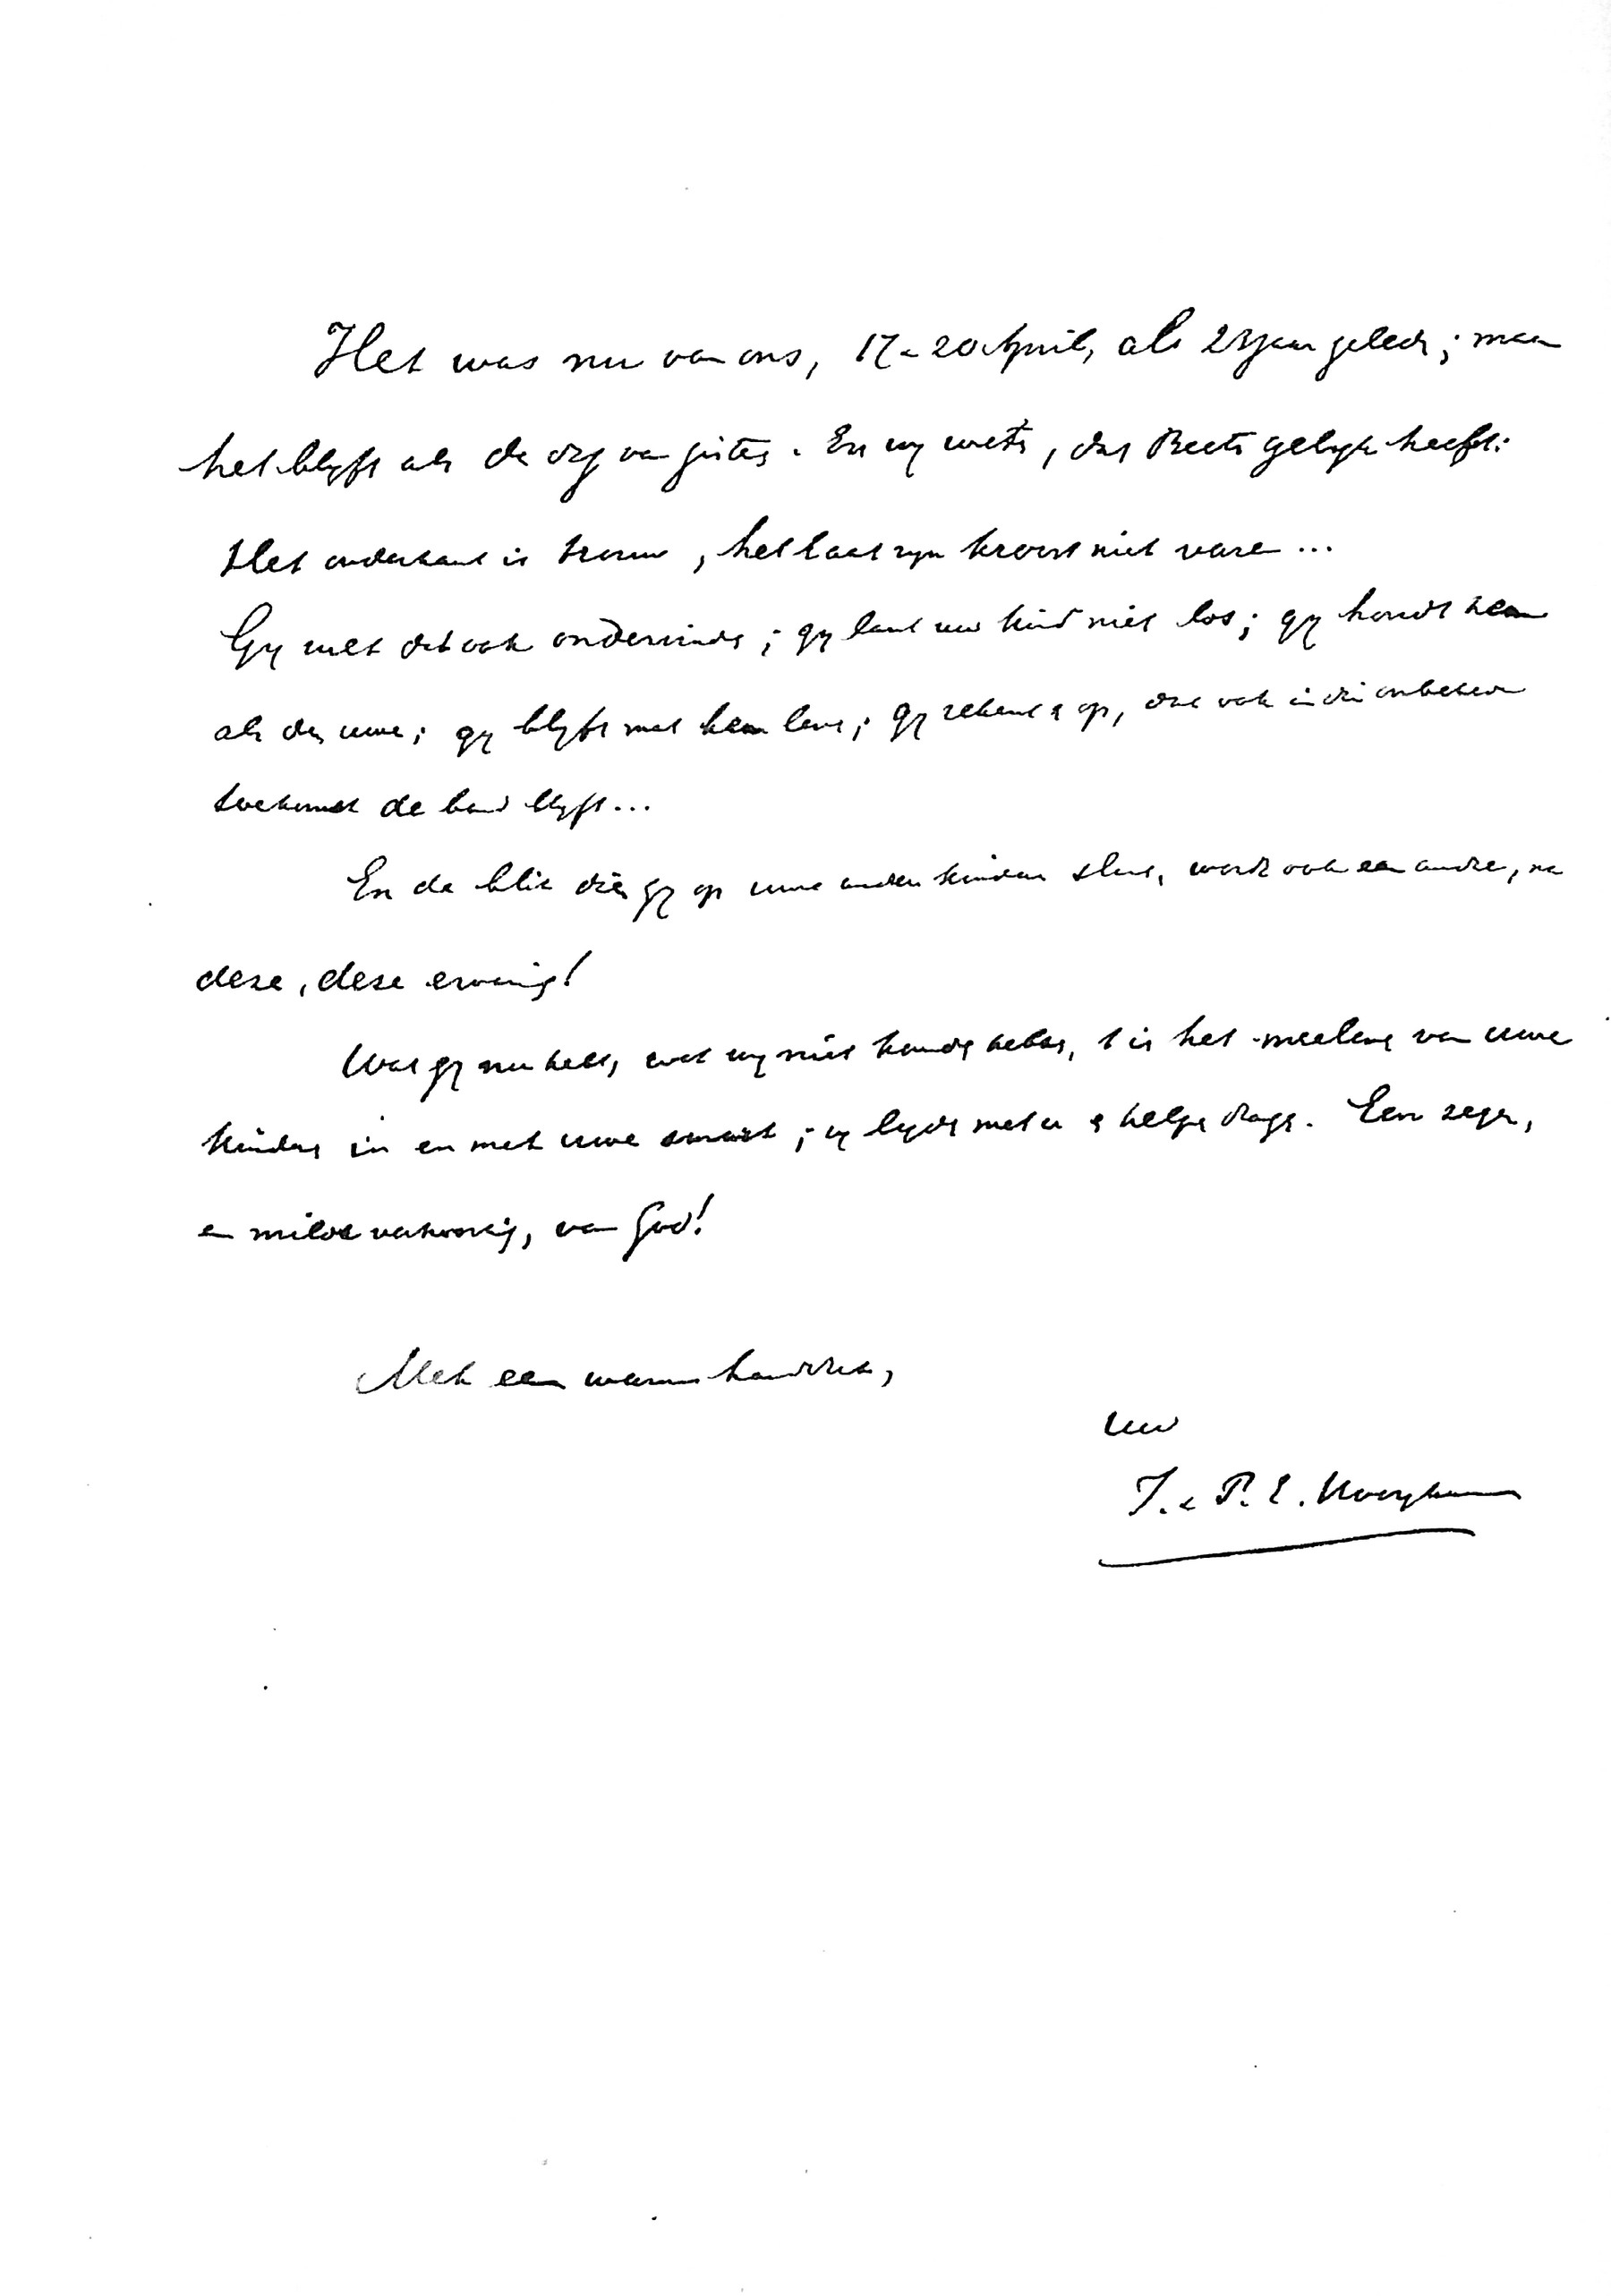 Het was nu van ons, 17 en 20 April, als 28 jaar geleden; maar
het blyft als de dag van gisteren. En wy weten, dat Beets gelyk heeft:
Het ouderhart is trouw, het laat zyn kroost niet varen...
Gy zult dit ook ondervinden; gy laat uw kind niet los; gy houdt hem
als den uwe; gy blyft met hem leven; gy rekent er op, dat ook in die onbekende
toekomst de band blyft...
En de blik dien gy op uwe andere kinderen slaat, wordt ook een andere, na
deze, deze ervaring!
Wat gy nu hebt, wat wy niet konden hebben, 't is het meeleven van uwe
kinderen in en met uwe smart; zy lyden met u en helpen dragen. Een zegen,
en milde vertroosting, van God!
Met een warmen handdruk,
Uw
J. en P. E.